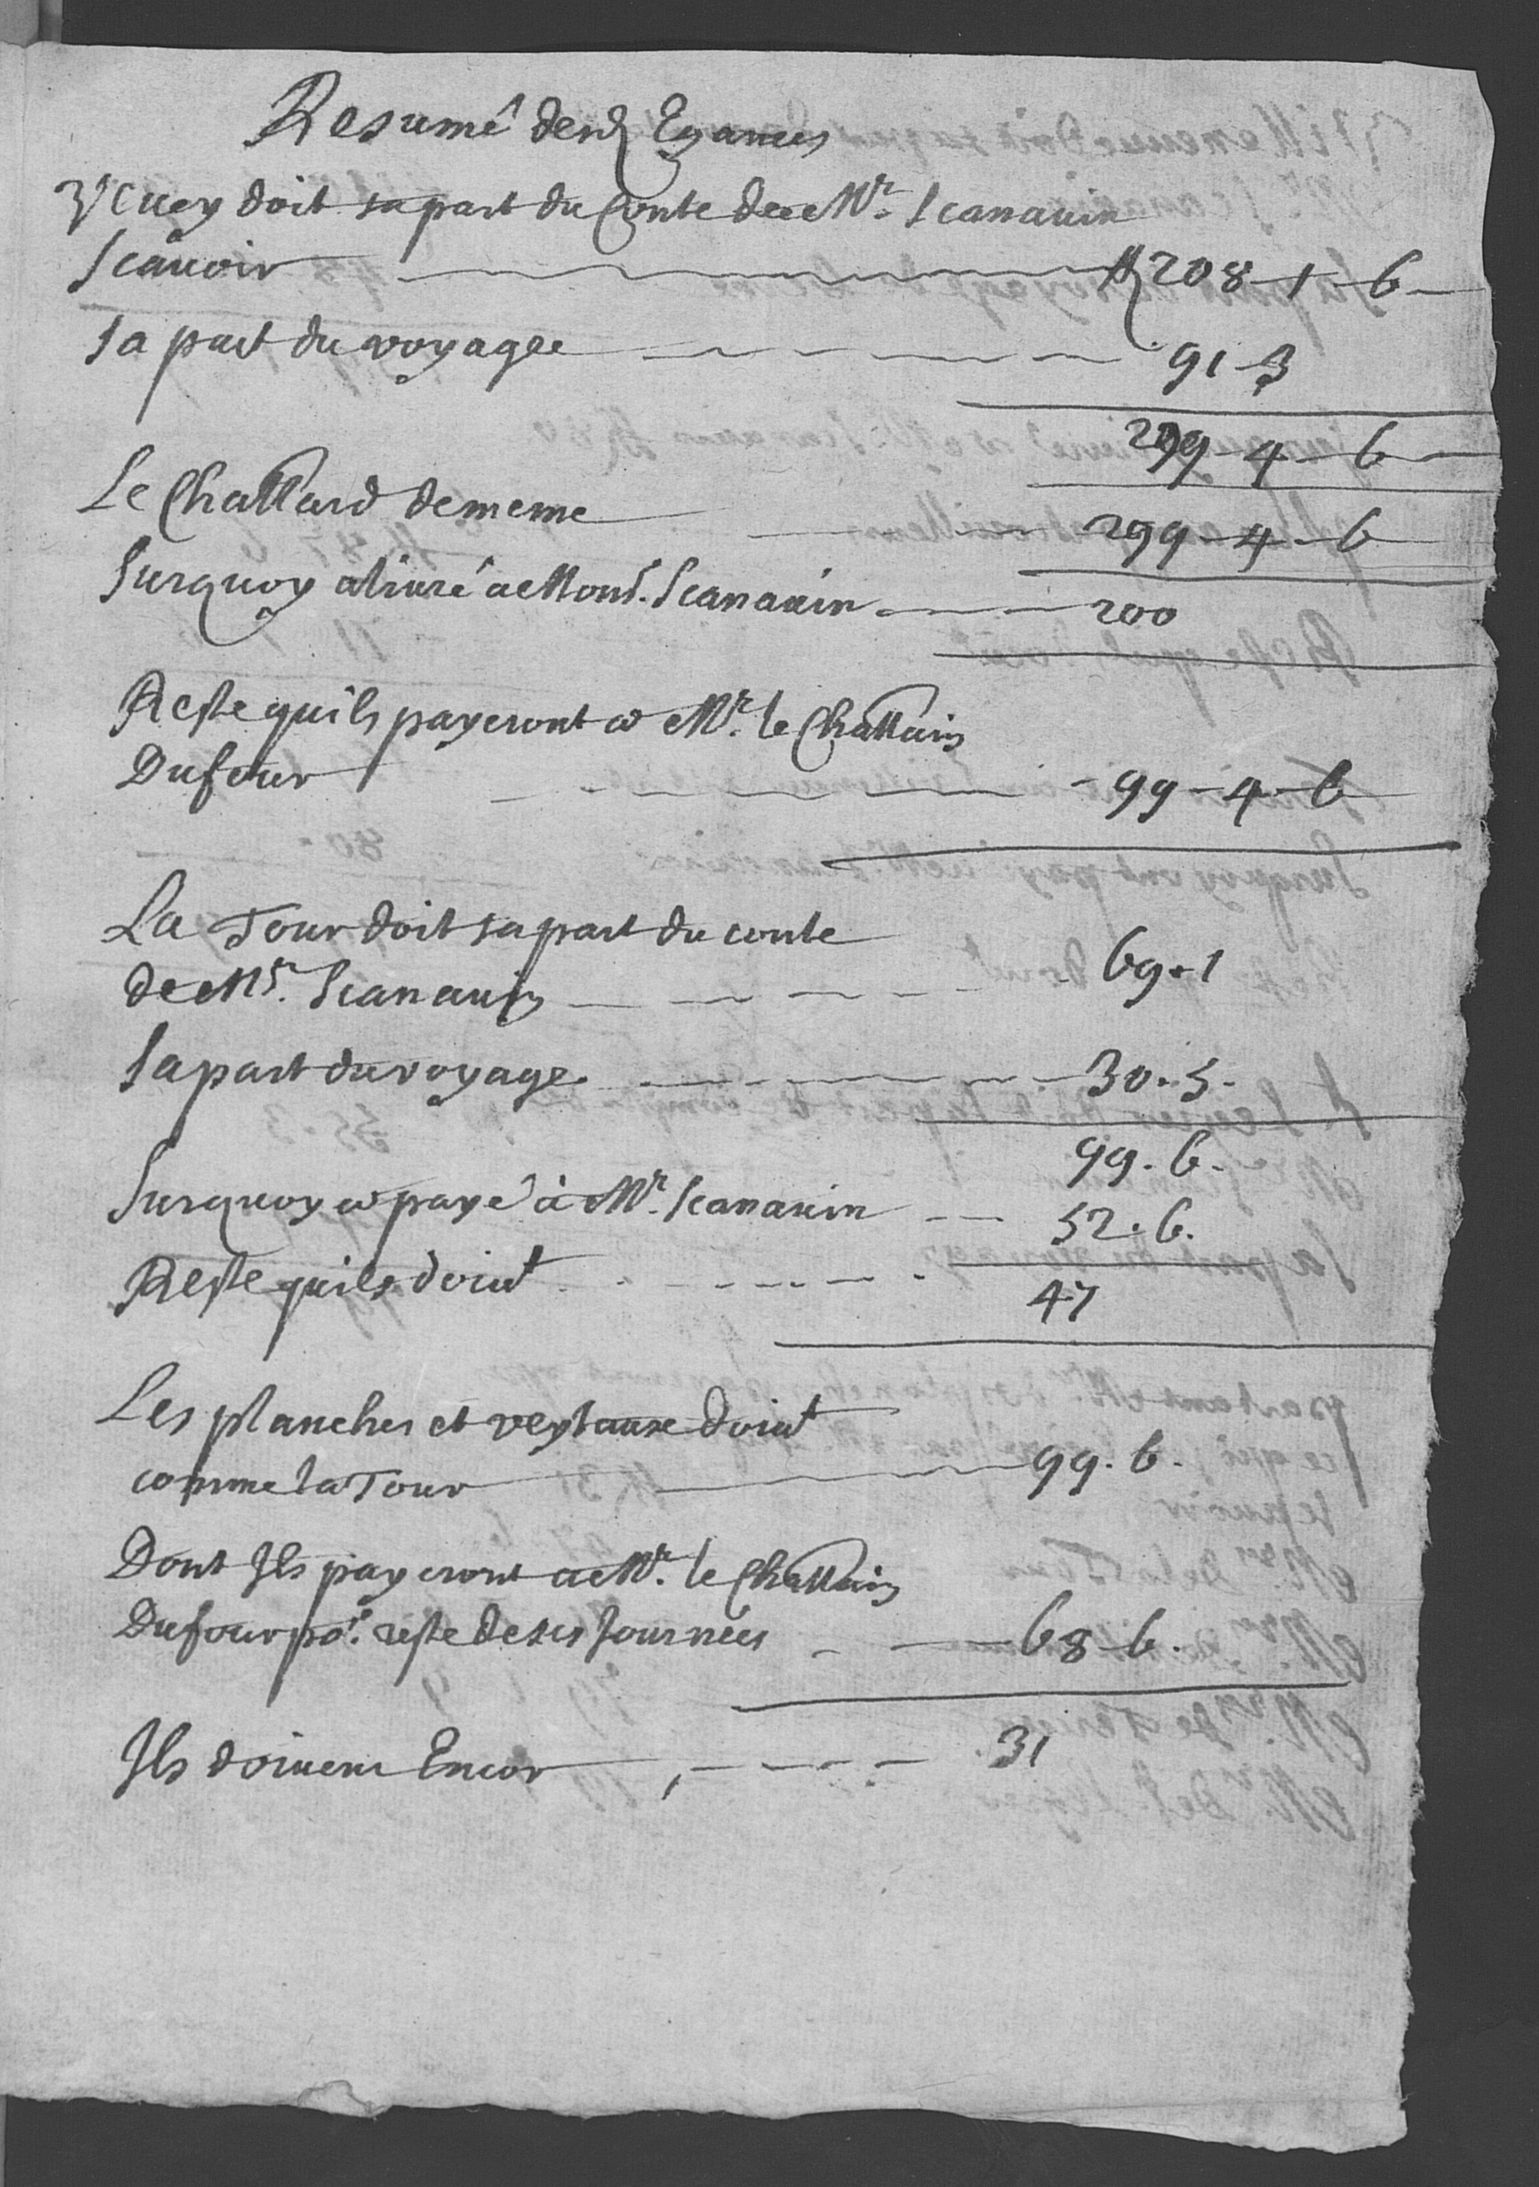 Resumé desd Egances
Vevey doit sa part du Conte de Mr. Scanavin
Scavoir 208-1-6
sa part du voyage 91-3
299-4-6
Le Chattard de meme 299-4-6
Surquoy a livré a Mons. Scanavin 200
Reste quils payeront a Mr. le Chattain
Dufour 99-4-6
La Tour doit sa part du conte
de Mr. Scanavin 69.1
sa part du voyage 30.5.
99.6.
Surquoy a payé à Mr. Scanavin 52.6.
Reste quils doivt 47
Les planches et veytaux doivt
comme la Tour 99.6.
Dont Ils payeront a Mr. le Chattain
Dufour por. reste de ses Journées 68-6.
Ils doivent Encor 31